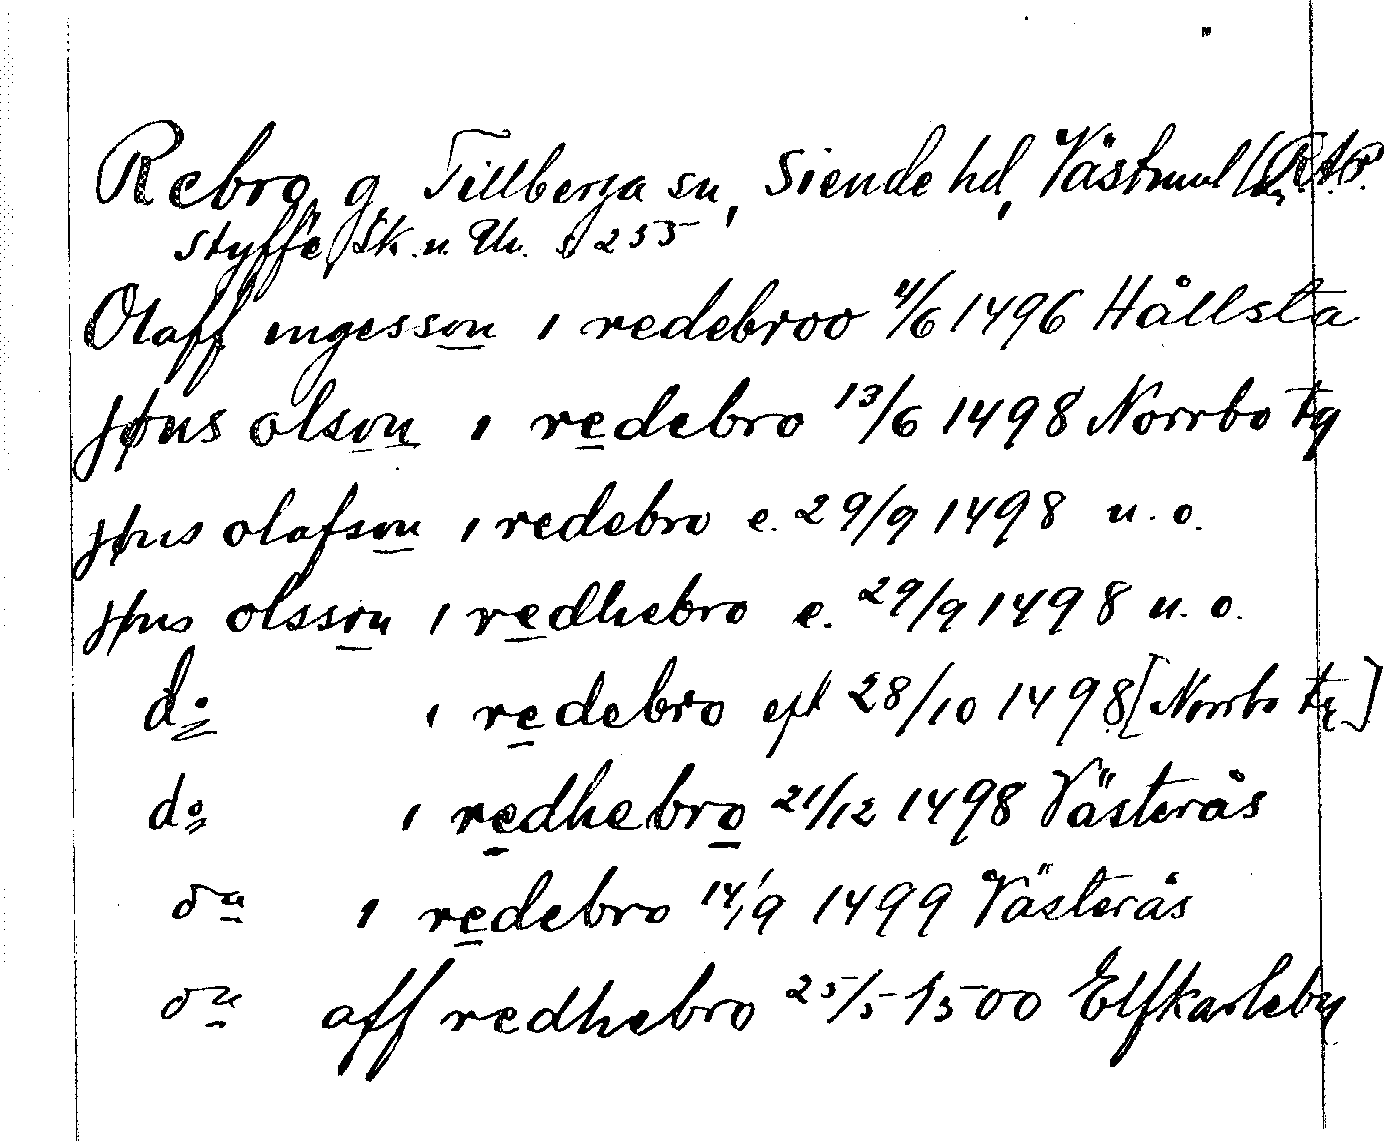 Rebro, g, Tillberga sn, Siende hd, Västmal
Styffe Sk. u. Un. s 255
Olaff ingesson i redebroo 4/6 1496 Hållsta
jfius olson i redebro 13/6 1498 Norrbo tg
jfius olafson i redebro e. 29/9 1498 u. o.
jfius olsson i redhebro e. 29/9 1498 u. o.
do i redebro eft 28/10 1498 [Norrbo tg]
do i redhebro 21/12 1498 Västerås
da i redebro 14/9 1499 Västerås
da aff redhebro 25/5 1500 Elfkarleby